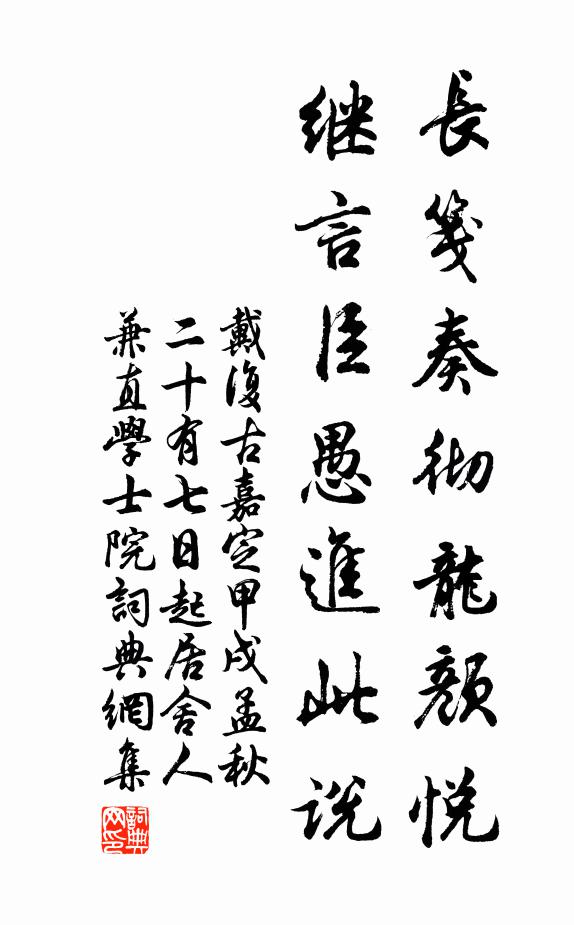 長箋奏彻龍顔悦
继言臣愚進此説
戴復古嘉定甲戌孟秋
二十有七日起居舍人
兼直學士院詞典網集
詞典
网印